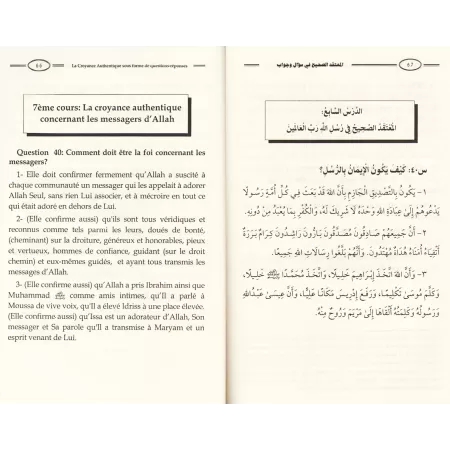 66
La Croyance Authentique sous forme de questions-réponses
7ème cours: La croyance authentique
concernant les messagers d'Allah
Question 40: Comment doit être la foi concernant les
messagers?
1- Elle doit confirmer fermement qu'Allah a suscité à
chaque communauté un messager qui les appelait à adorer
Allah Seul, sans rien Lui associer, et à mécroire en tout ce
qui était adoré en dehors de Lui.
2- (Elle confirme aussi) qu'ils sont tous véridiques et
reconnus comme tels parmi les leurs, doués de bonté,
(cheminant) sur la droiture, généreux et honorables, pieux
et vertueux, hommes de confiance, guidant (sur le droit
chemin) et eux-mêmes guidés, et ayant tous transmis les
messages d'Allah.
3- (Elle confirme aussi) qu'Allah a pris Ibrahim ainsi que
Muhammad ﷺ comme amis intimes, qu'Il a parlé à
Moussa de vive voix, qu'Il a élevé Idriss à une place élevée.
(Elle confirme aussi) qu'Issa est un adorateur d'Allah, Son
messager et Sa parole qu'Il a transmise à Maryam et un
esprit venant de Lui.
المعتقد الصحيح في سؤال وجواب
67
الدَّرْسُ السَّابِعُ:
المُعْتَقَدُ الصَّحِيحُ فِي رُسُلِ اللَّهِ رَبِّ العَالَمِينَ
س٤٠: كَيْفَ يَكُونُ الْإِيمَانُ بِالرُّسُلِ؟
١- يَكُونُ بِالتَّصْدِيقِ الْجَازِمِ بِأَنَّ اللَّهَ قَدْ بَعَثَ فِي كُلِّ أُمَّةٍ رَسُولًا
يَدْعُوهُمْ إِلَى عِبَادَةِ اللَّهِ وَحْدَهُ لَا شَرِيكَ لَهُ، وَالْكُفْرِ بِمَا يُعْبَدُ مِنْ دُونِهِ.
٢- أَنَّ جَمِيعَهُمْ صَادِقُونَ مُصَدَّقُونَ بَارُّونَ رَاشِدُونَ كِرَامٌ بَرَرَةٌ
أَتْقِيَاءُ أُمَنَاءُ هُدَاةٌ مُهْتَدُونَ. وَأَنَّهُمْ بَلَّغُوا رِسَالَاتِ اللَّهِ جَمِيعًا.
٣- وَأَنَّ اللَّهَ اتَّخَذَ إِبْرَاهِيمَ خَلِيلًا، وَاتَّخَذَ مُحَمَّدًا ﷺ خَلِيلًا،
وَكَلَّمَ مُوسَى تَكْلِيمًا، وَرَفَعَ إِدْرِيسَ مَكَانًا عَلِيًّا، وَأَنَّ عِيسَى عَبْدُ اللَّهِ
وَرَسُولُهُ وَكَلِمَتُهُ أَلْقَاهَا إِلَى مَرْيَمَ وَرُوحٌ مِنْهُ.